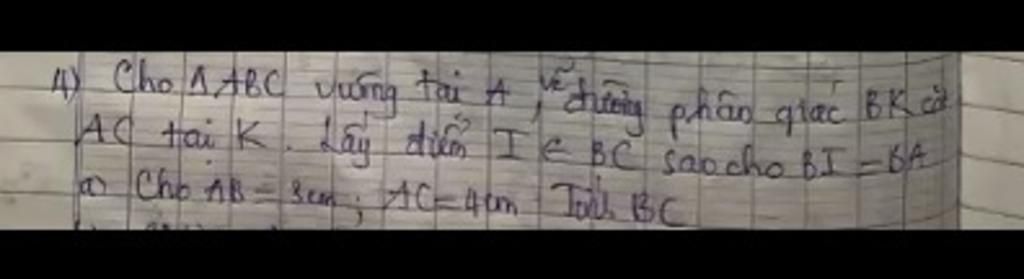 4) Cho ΔABC vuông tại A, vẽ đường phân giác BK cắt
AC tại K. Lấy điểm I ∈ BC sao cho BI = BA
a) Cho AB = 3cm; AC = 4cm Tính BC